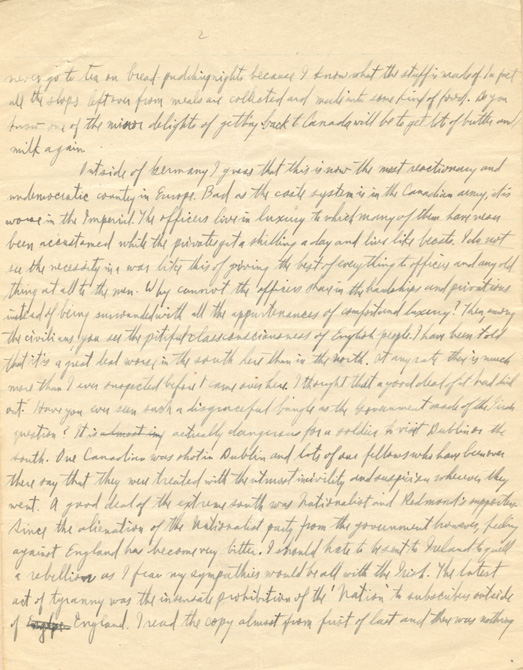 2
never go to tea on bread pudding nights because I know what the stuff is made of. In fact
all the slops left over from meals are collected and made into some kind of food. Do you
know one of the minor delights of getting back to Canada will be to get lots of butter and
milk again
Outside of Germany I guess that this is now the most reactionary and
undemocratic country in Europe. Bad as the caste system is in the Canadian army, it is
worse in the Imperial. The officers live in luxury to which many of them have never
been accustomed while the privates get a shilling a day and live like beasts. I do not
see the necessity in a war like this of giving the best of everything to officers and any old
thing at all to the men. Why cannot the officers share in the hardships and privations
instead of being surrounded with all the appurtenances of comfort and luxury? Then among
the civilians you see the pitiful classconsciousness of English people. I have been told
that it's a great deal worse in the south here than in the north. At any rate this is much
more than I ever suspected before I came over here. I thought that a good deal of it had died
out. Have you ever seen such a disgraceful bungle as the Government made of the Irish
question? It is almost in actually dangerous for a soldier to visit Dublin or the
south. One Canadian was shot in Dublin and lots of our fellows who have been over
there say that they were treated with the utmost incivility and suspicion wherever they
went. A good deal of the extreme south was Nationalist and Redmond's supporters
Since the alienation of the Nationalist party from the government however, feeling
against England has become very bitter. I should hate to be sent to Ireland to quell
a rebellion as I fear my sympathies would be all with the Irish. The latest
act of tyranny was the prohibition of the 'Nation' to subscribers outside
of England. I read the copy almost from first to last and there was nothing